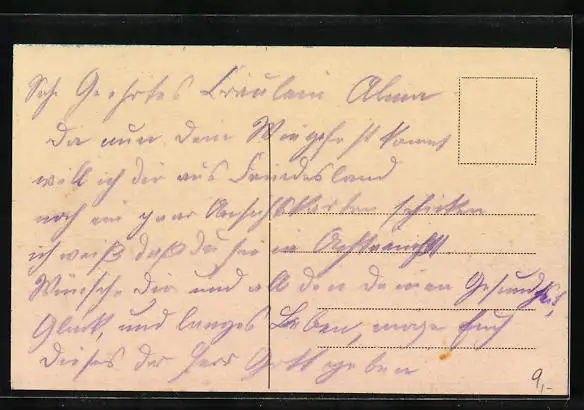 Sehr Geehrtes Fräulein Alma
Da nun dein Wiegefest kommt
will ich dir aus Feindesland
noch ein paar Ansichtskarten schicken
ich weiß daß du sie in Acht
Wünsche Dir und all den deinen Gesundheit,
Glück, und langes Leben, möge Euch
dieses der Herr Gott geben
9,-